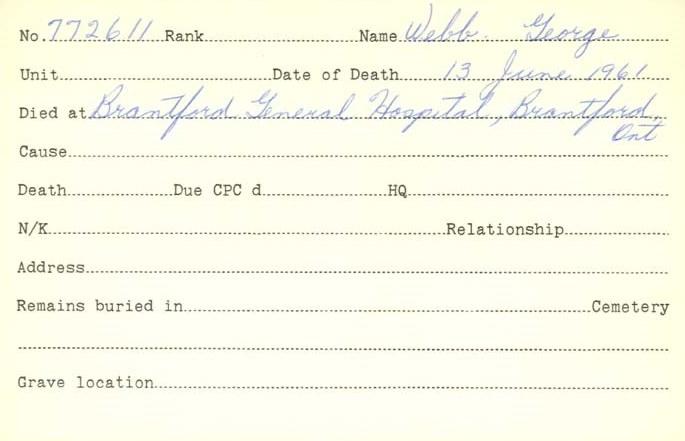 No. 772611 Rank Name Webb. George
Unit Date of Death 13 June 1961
Died at Brantford General Hospital, Brantford,
Ont
Cause
Death Due CPC d HQ
N/K Relationship
Address
Remains buried in Cemetery
Grave location